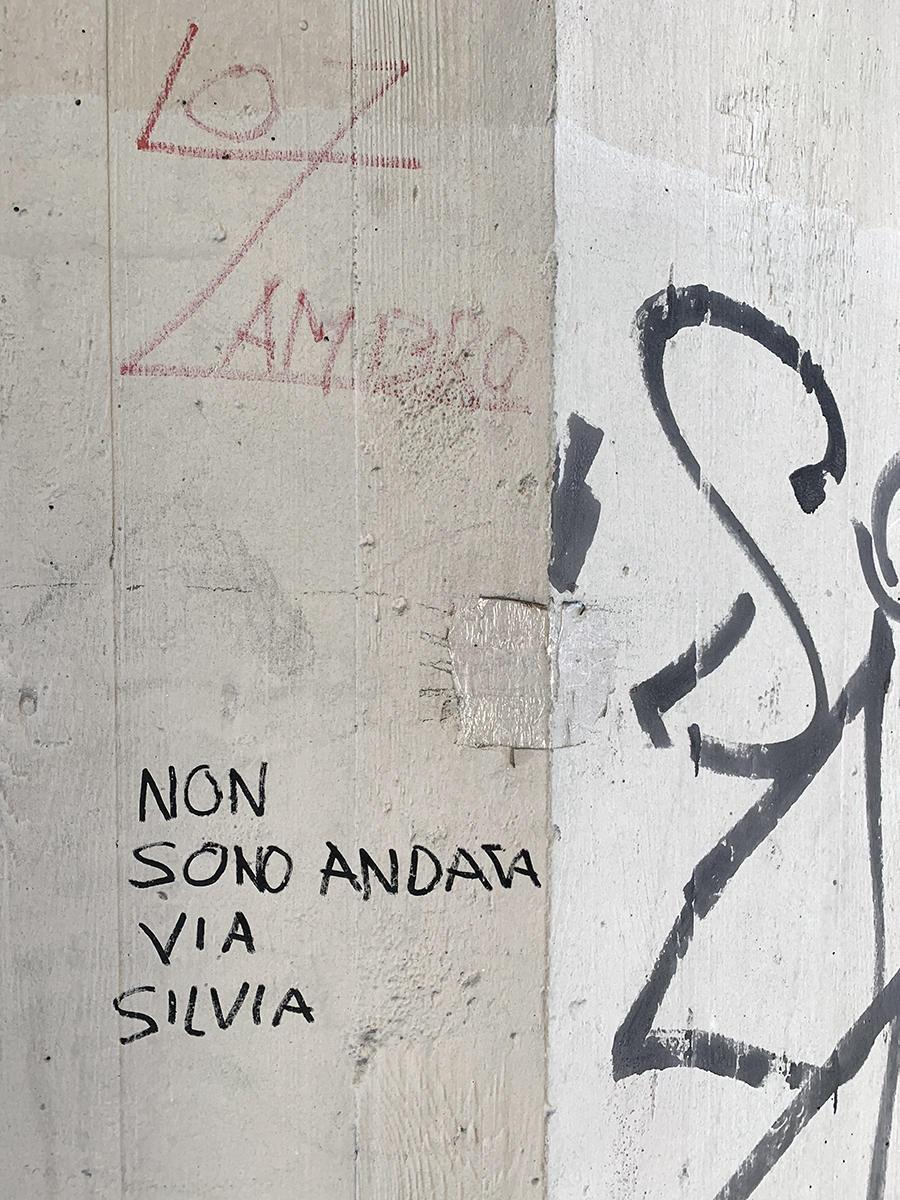 LO
ZAMBRO
NON
SONO ANDATA
VIA
SILVIA